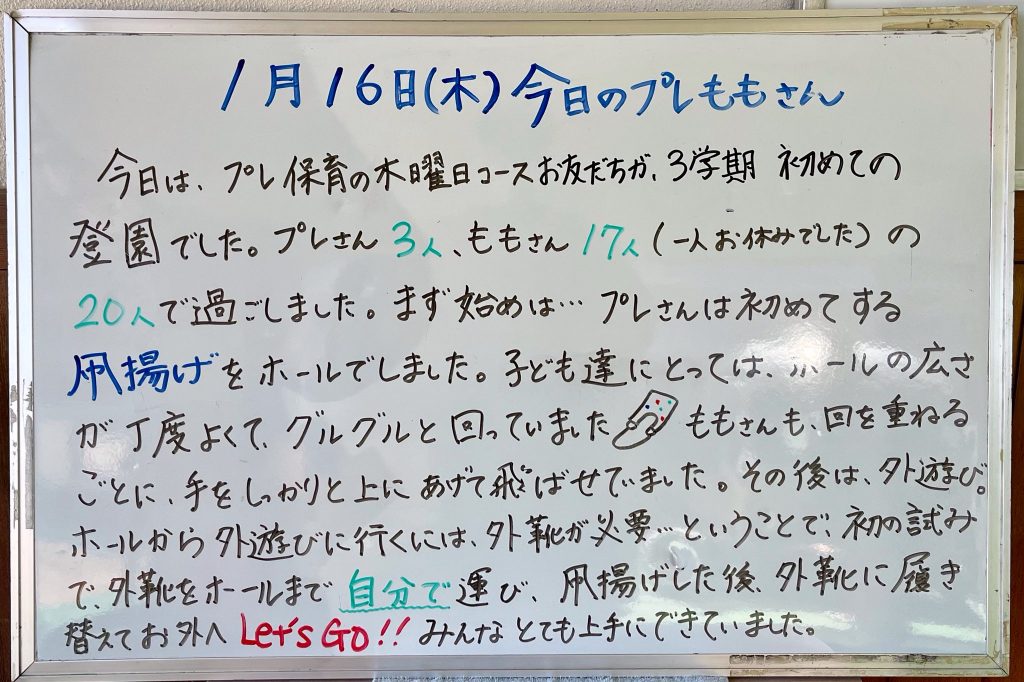 1月16日(木)今日のプレももさん
今日は、プレ保育の木曜日コースお友だちが、3学期 初めての
登園でした。プレさん 3人、ももさん 17人(一人お休みでした)の
20人で過ごしました。まず始めは… プレさんは初めてする
凧揚げをホールでしました。子ども達にとっては、ホールの広さ
が丁度よくて、グルグルと回っていました ももさんも、回を重ねる
ごとに、手をしっかりと上にあげて飛ばせていました。その後は、外遊び。
ホールから外遊びに行くには、外靴が必要…ということで、初の試み
で、外靴をホールまで 自分で 運び、凧揚げした後、外靴に履き
替えてお外へ Let's Go!! みんなとても上手にできていました。